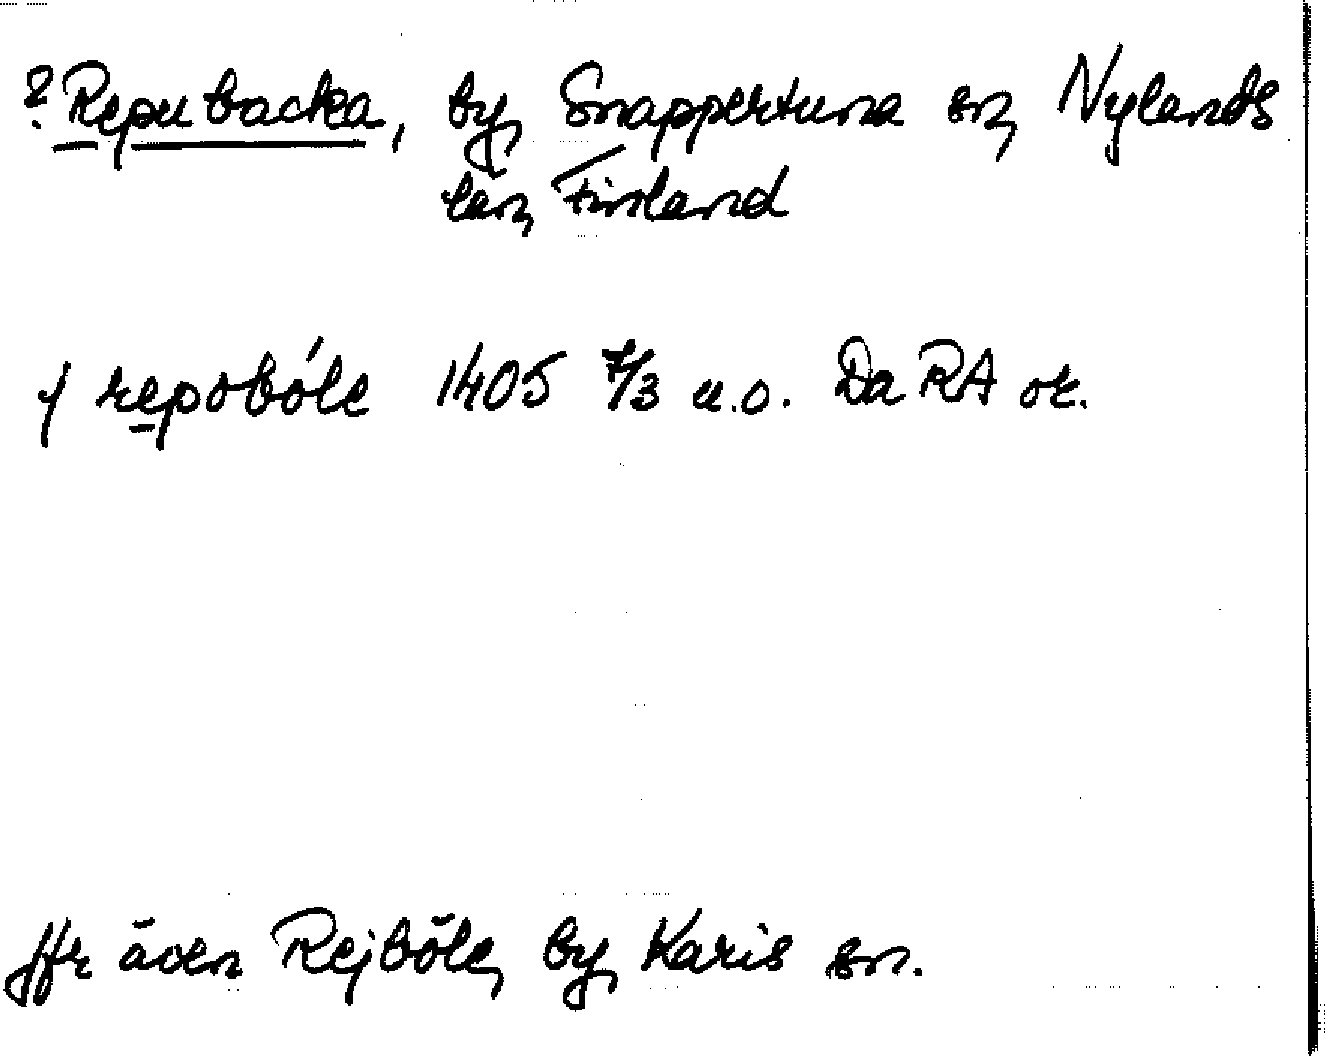 ? Repubacka, by, Snappertuna sn, Nylands
län, Finland
j repobóle 1405 7/3 u.o. Da RA ok.
Jfr även Rejböle, by, Karis sn.